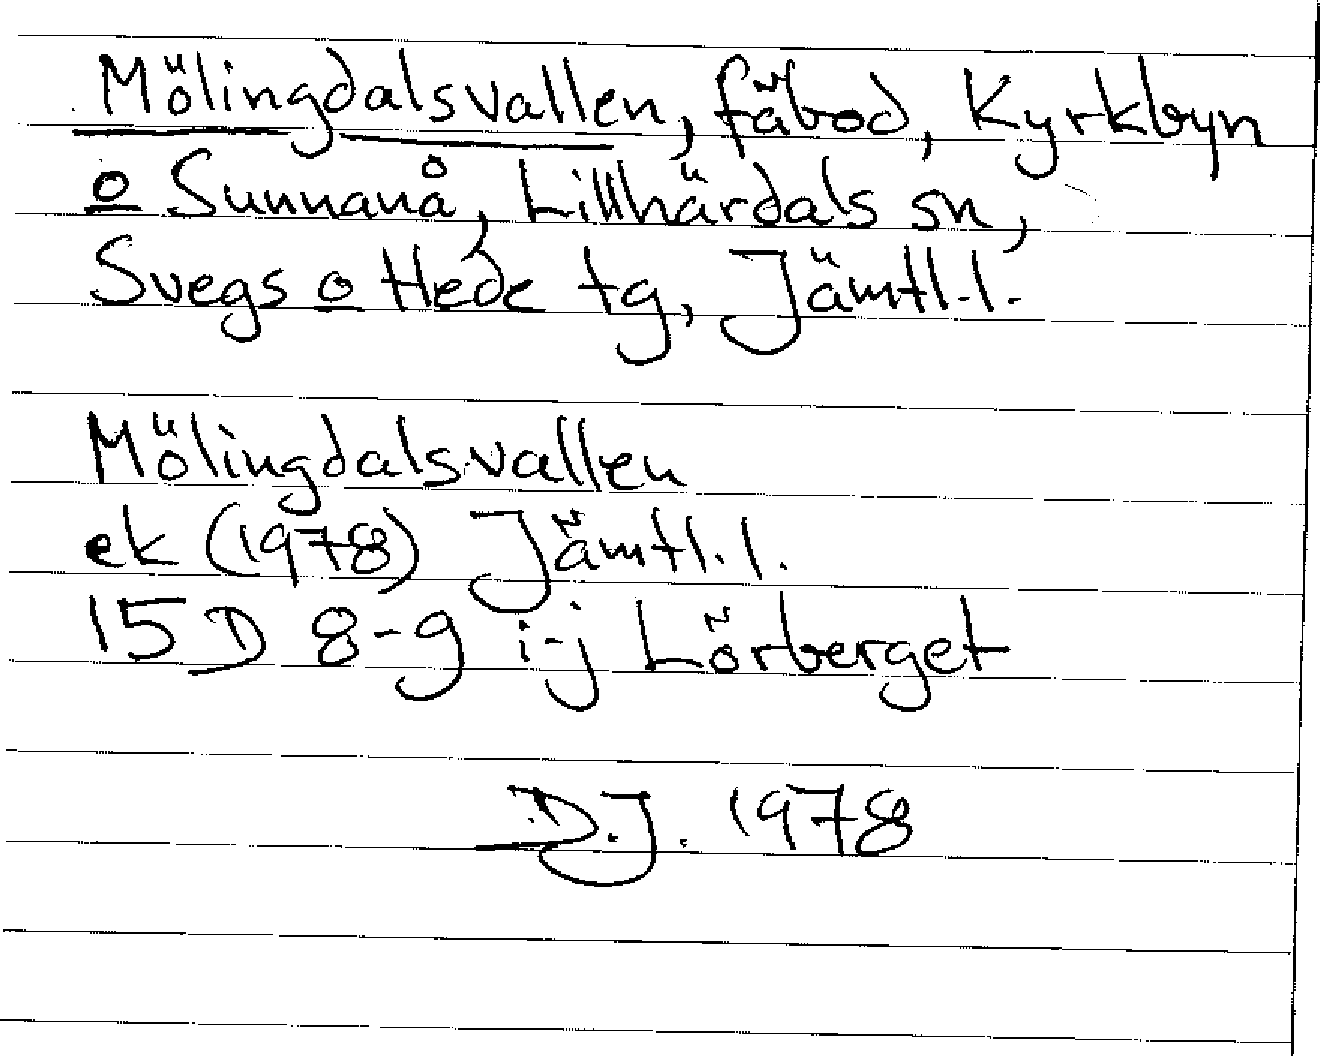 Mölingdalsvallen, fäbod, Kyrkbyn
o Sunnanå, Lillhärdals sn,
Svegs o Hede tg, Jämtl.l.
Mölingdalsvallen
ek (1978) Jämtl.l.
15 D 8-9 i-j Lörberget
D.J. 1978